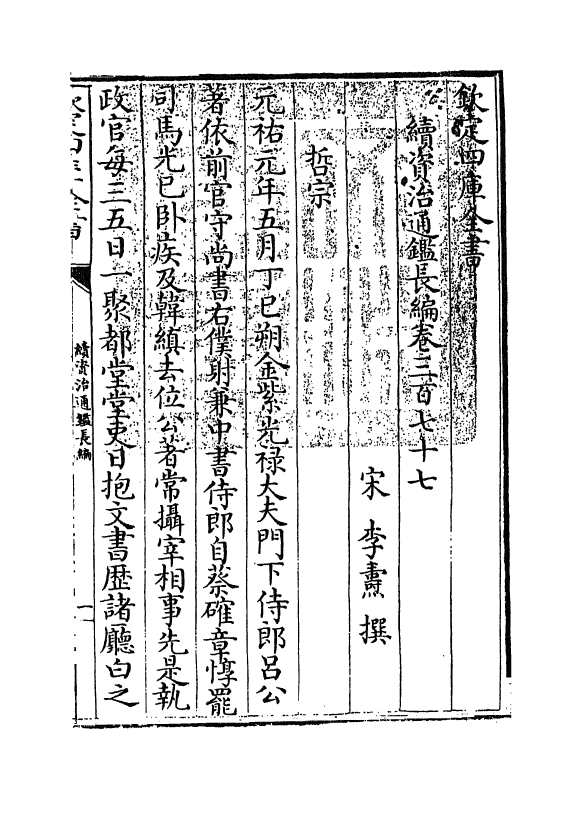 欽定四庫全書
續資治通鑑長編卷三百七十七
宋 李燾 撰
哲宗
元祐元年五月丁巳朔金紫光禄大夫門下侍郎吕公
著依前官守尚書右僕射兼中書侍郎自蔡確章惇罷
司馬光已卧疾及韓縝去位公著常攝宰相事先是執
政官每三五日一聚都堂堂吏日抱文書歴諸廳白之
續資治通鑑長編
一